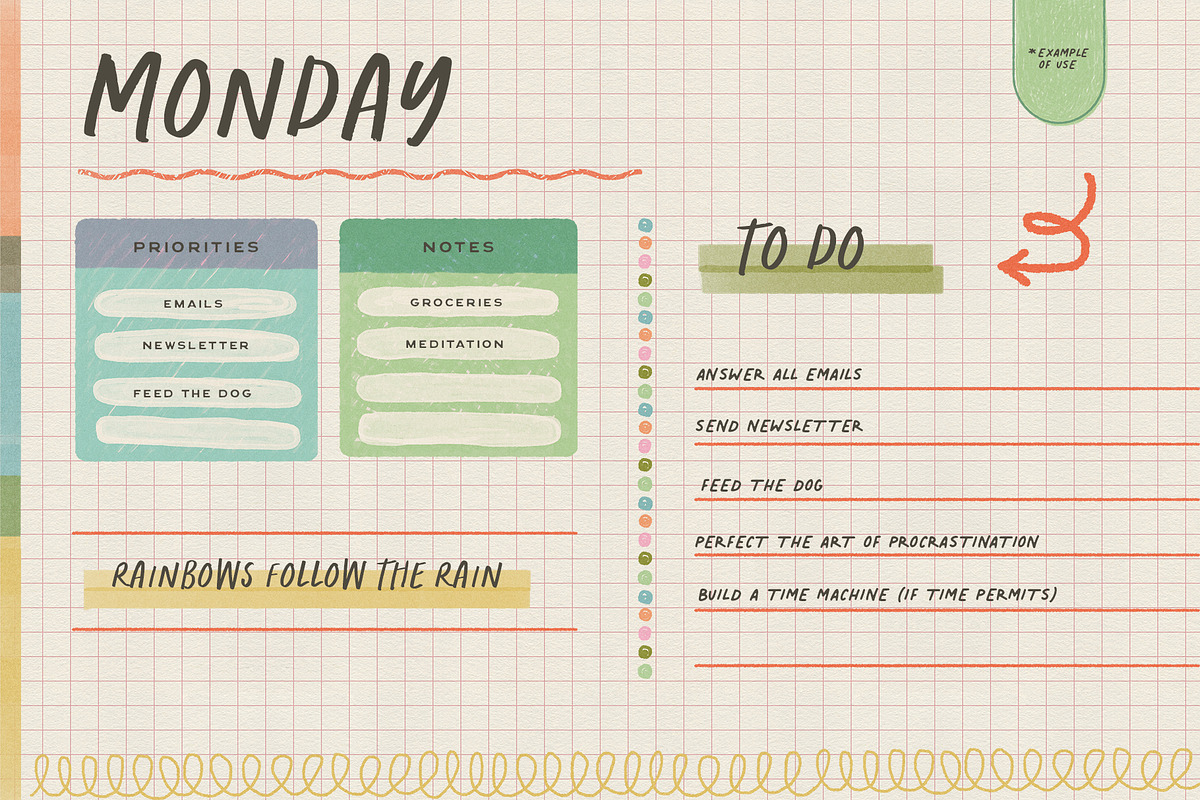 MONDAY
*EXAMPLE
OF USE
PRIORITIES
EMAILS
NEWSLETTER
FEED THE DOG
NOTES
GROCERIES
MEDITATION
RAINBOWS FOLLOW THE RAIN
TO DO
ANSWER ALL EMAILS
SEND NEWSLETTER
FEED THE DOG
PERFECT THE ART OF PROCRASTINATION
BUILD A TIME MACHINE (IF TIME PERMITS)